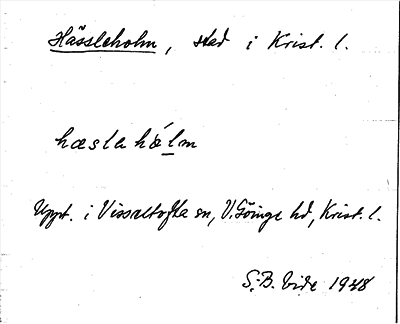 Hässleholm, stad i Krist. l.
hæsləhólm
Uppt. i Vissseltofta sn, V. Göinge hd, Krist. l.
S.-B. Vide 1948